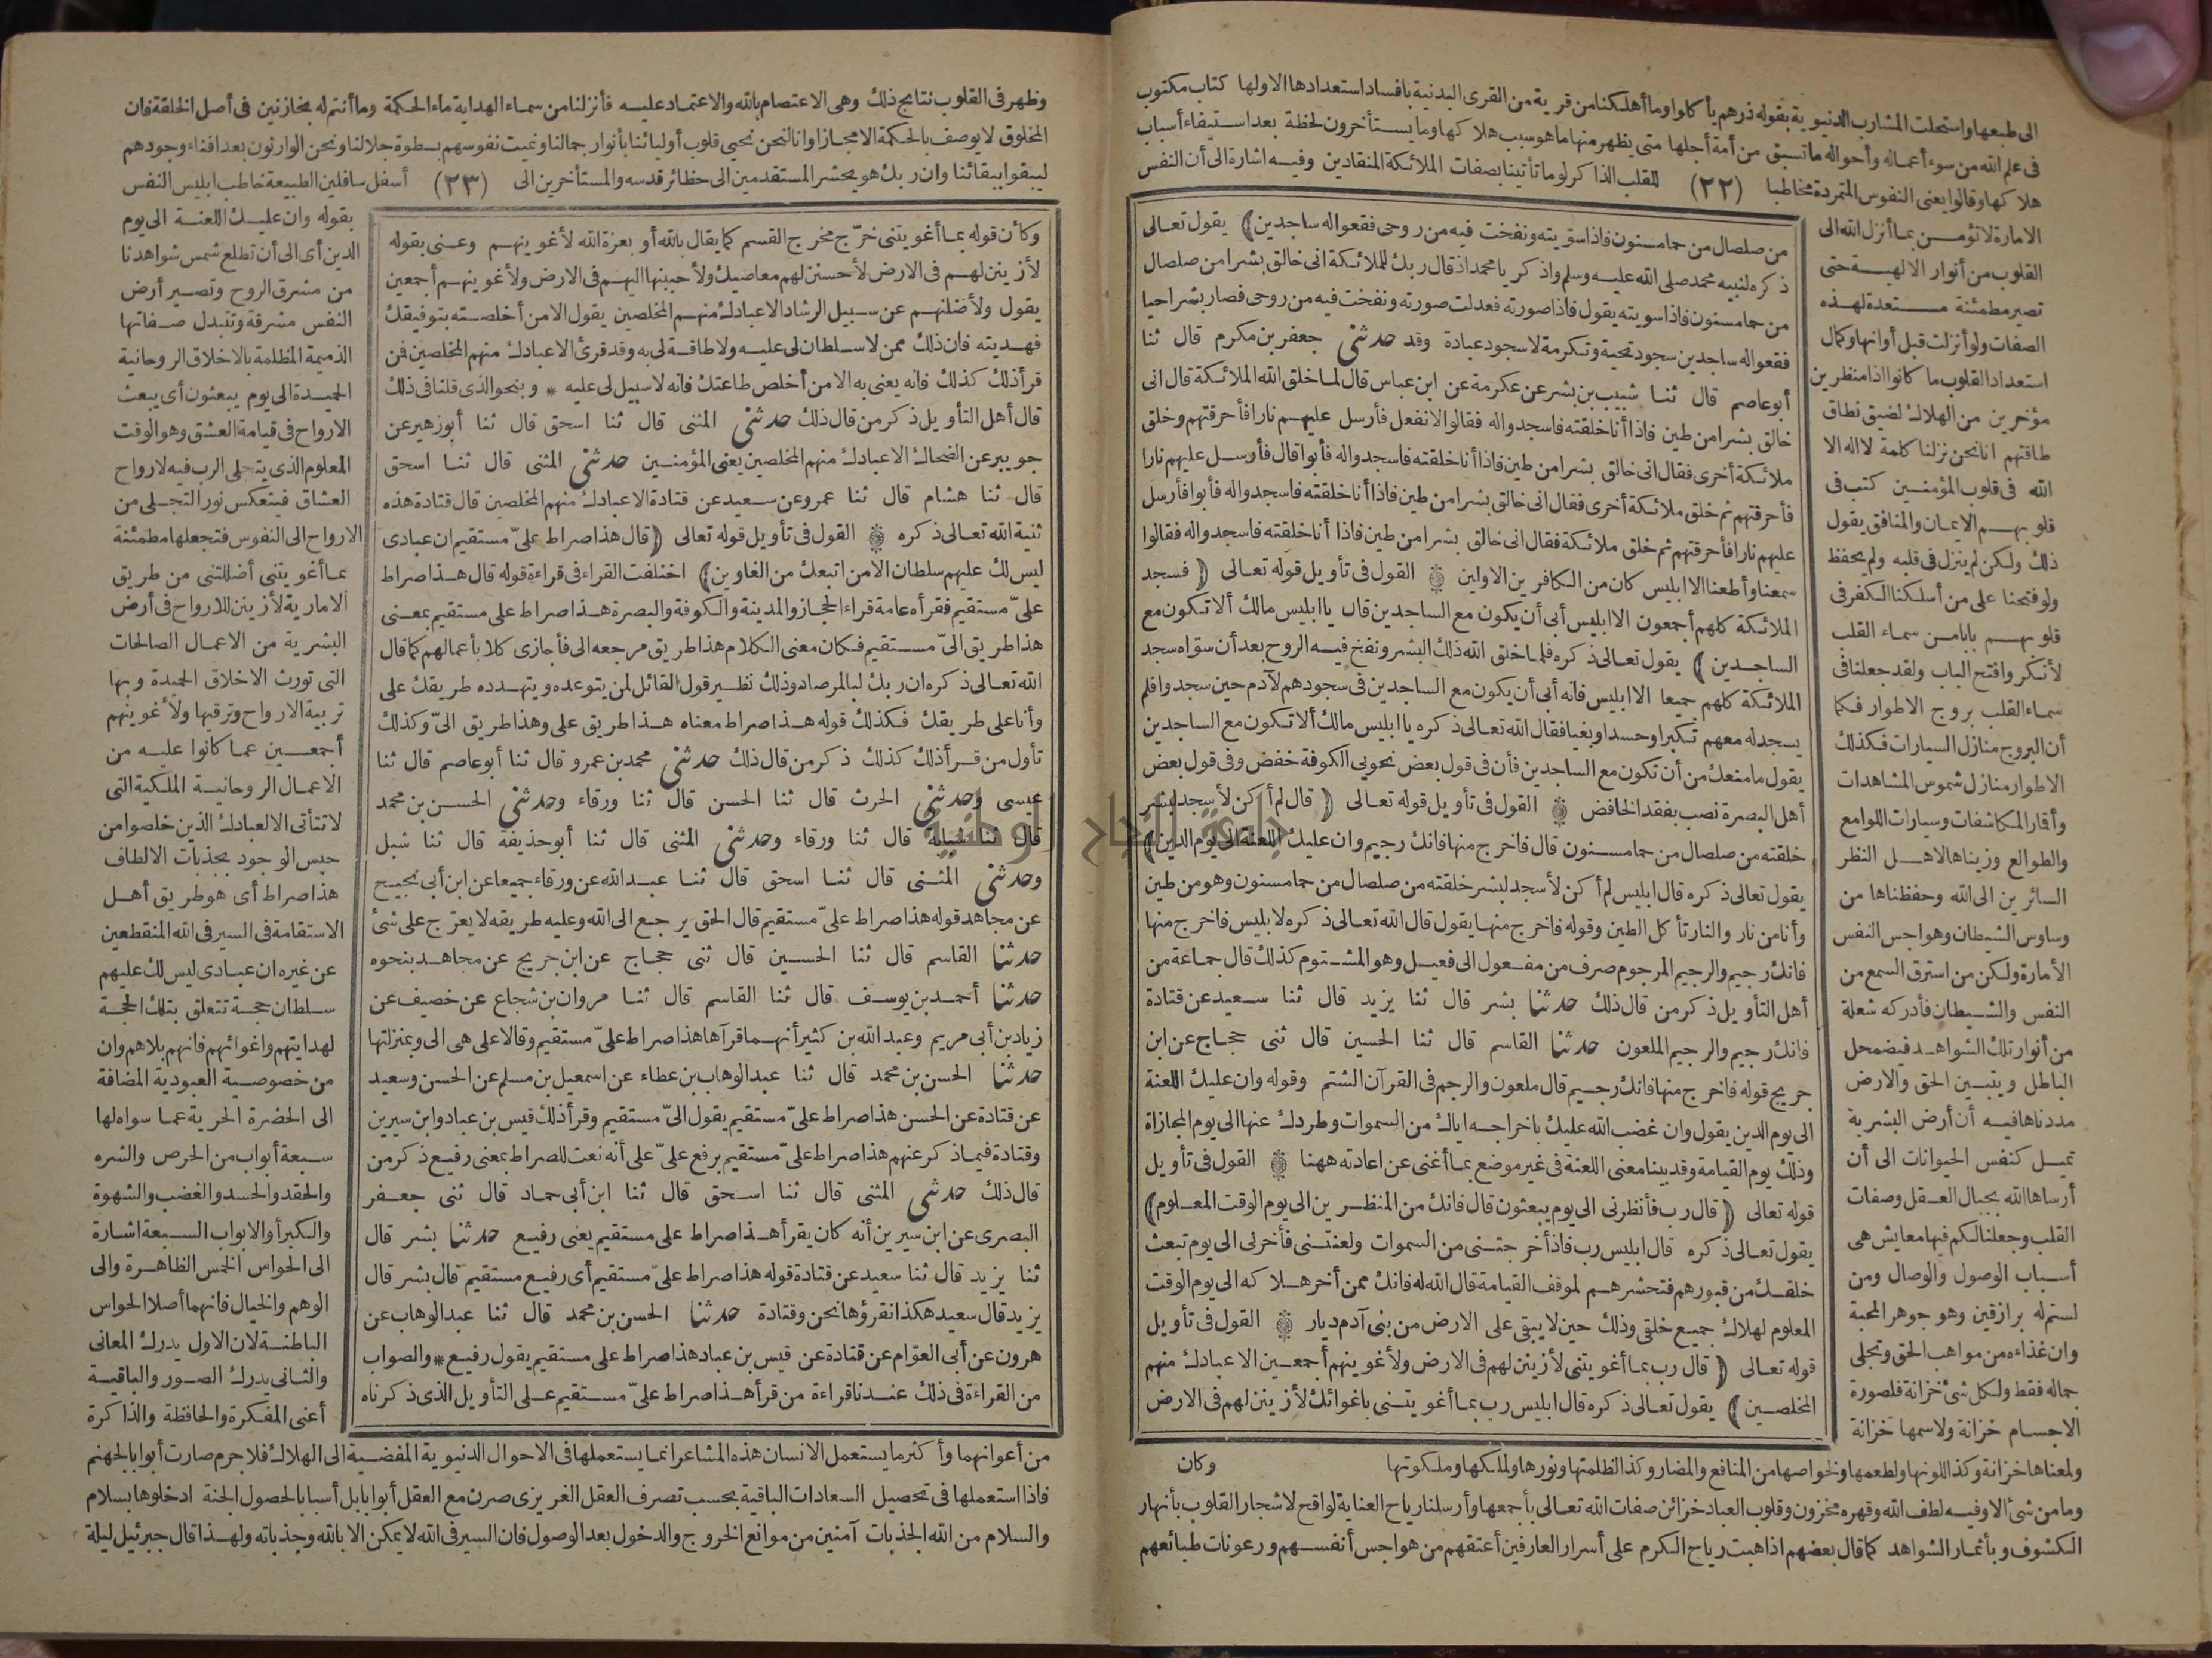 الى طبعها واستحلت المشارب الدنيوية بقوله ذرهم يأكلوا وما أهلكنا من قرية من القرى البدنية بافساد استعدادها الا ولها كتاب مكتوب
فى علم الله من سوء أعماله وأحواله ما تسبق من أمة أجلها متى يظهر منها ما هو سبب هلاكها وما يستأخرون لحظة بعد استيفاء أسباب
هلاكها وقالوا يعنى النفوس المتمردة مخاطبا (٢٢) للقلب الذاكر لو ما تأتينا بصفات الملائكة المنقادين وفيه اشارة الى أن النفس
الامارة لا تؤمن بما أنزل الله الى
القلوب من أنوار الالهية حتى
تصير مطمئنة مستعدة لهذه
الصفات ولو أنزلت قبل أوانها وكمال
استعداد القلوب ما كانوا اذا منظرين
مؤخرين من الهلاك لضيق نطاق
طاقتهم انا نحن نزلنا كلمة لا اله الا
الله فى قلوب المؤمنين كتب فى
قلوبهم الايمان والمنافق يقول
ذلك ولكن لم ينزل فى قلبه ولم يحفظ
ولو فتحنا على من أسلكنا الكفر فى
قلوبهم بابا من سماء القلب
لأنكروا فتح الباب ولقد جعلنا فى
سماء القلب بروج الاطوار فكما
أن البروج منازل السيارات فكذلك
الاطوار منازل شموس المشاهدات
وأقمار المكاشفات وسيارات اللوامع
والطوالع وزيناها لاهل النظر
السائرين الى الله وحفظناها من
وساوس الشيطان وهواجس النفس
الأمارة ولكن من استرق السمع من
النفس والشيطان فأدركه شعلة
من أنوار تلك الشواهد فيضمحل
الباطل ويتبين الحق والارض
مددناها فيه أن أرض البشرية
تميل كنفس الحيوانات الى أن
أرساها الله بجبال العقل وصفات
القلب وجعلنا لكم فيها معايش هى
أسباب الوصول والوصال ومن
لستم له برازقين وهو جوهر المحبة
وان غذاءه من مواهب الحق وتجلى
جماله فقط ولكل شئ خزانة فلصورة
الاجسام خزانة ولاسمها خزانة
من صلصال من حما مسنون فاذا سويته ونفخت فيه من روحى فقعوا له ساجدين) يقول تعالى
ذكره لنبيه محمد صلى الله عليه وسلم واذكر يا محمد اذ قال ربك للملائكة انى خالق بشرا من صلصال
من حما مسنون فاذا سويته يقول فاذا صورته فعدلت صورته ونفخت فيه من روحى فصار بشرا حيا
فقعوا له ساجدين سجود تحية وتكرمة لا سجود عبادة وقد حدثنى جعفر بن مكرم قال ثنا
أبو عاصم قال ثنا شبيب بن بشر عن عكرمة عن ابن عباس قال لما خلق الله الملائكة قال انى
خالق بشرا من طين فاذا أنا خلقته فاسجدوا له فقالوا لا نفعل فأرسل عليهم نارا فأحرقتهم وخلق
ملائكة أخرى فقال انى خالق بشرا من طين فاذا أنا خلقته فاسجدوا له فأبوا قال فأرسل عليهم نارا
فأحرقتهم ثم خلق ملائكة أخرى فقال انى خالق بشرا من طين فاذا أنا خلقته فاسجدوا له فأبوا فأرسل
عليهم نارا فأحرقتهم ثم خلق ملائكة فقال انى خالق بشرا من طين فاذا أنا خلقته فاسجدوا له فقالوا
سمعنا وأطعنا الا ابليس كان من الكافرين الاولين القول فى تأويل قوله تعالى (فسجد
الملائكة كلهم أجمعون الا ابليس أبى أن يكون مع الساجدين قال يا ابليس مالك ألا تكون مع
الساجدين) يقول تعالى ذكره فلما خلق الله ذلك البشر ونفخ فيه الروح بعد أن سواه سجد
الملائكة كلهم جميعا الا ابليس فانه أبى أن يكون مع الساجدين فى سجودهم لآدم حين سجدوا فلم
يسجد له معهم تكبرا وحسدا وبغيا فقال الله تعالى ذكره يا ابليس مالك ألا تكون مع الساجدين
يقول ما منعك من أن تكون مع الساجدين فأن فى قول بعض نحويى الكوفة خفض وفى قول بعض
أهل البصرة نصب بفقد الخافض القول فى تأويل قوله تعالى (قال لم أكن لأسجد لبشر
خلقته من صلصال من حما مسنون قال فاخرج منها فانك رجيم وان عليك اللعنة الى يوم الدين)
يقول تعالى ذكره قال ابليس لم أكن لأسجد لبشر خلقته من صلصال من حما مسنون وهو من طين
وأنا من نار والنار تأكل الطين وقوله فاخرج منها يقول قال الله تعالى ذكره لابليس فاخرج منها
فانك رجيم والرجيم المرجوم صرف من مفعول الى فعيل وهو المشتوم كذلك قال جماعة من
أهل التأويل ذكر من قال ذلك حدثنا بشر قال ثنا يزيد قال ثنا سعيد عن قتادة
فانك رجيم والرجيم الملعون حدثنا القاسم قال ثنا الحسين قال ثنى حجاج عن ابن
جريج قوله فاخرج منها فانك رجيم قال ملعون والرجم فى القرآن الشتم وقوله وان عليك اللعنة
الى يوم الدين يقول وان غضب الله عليك باخراجه اياك من السموات وطردك عنها الى يوم المجازاة
وذلك يوم القيامة وقد بينا معنى اللعنة فى غير موضع بما أغنى عن اعادته ههنا القول فى تأويل
قوله تعالى (قال رب فأنظرنى الى يوم يبعثون قال فانك من المنظرين الى يوم الوقت المعلوم)
يقول تعالى ذكره قال ابليس رب فاذ أخرجتنى من السموات ولعنتنى فأخرنى الى يوم تبعث
خلقك من قبورهم فتحشرهم لموقف القيامة قال الله له فانك ممن أخر هلاكه الى يوم الوقت
المعلوم لهلاك جميع خلقى وذلك حين لا يبقى على الارض من بنى آدم ديار القول فى تأويل
قوله تعالى (قال رب بما أغويتنى لأزينن لهم فى الارض ولأغوينهم أجمعين الا عبادك منهم
المخلصين) يقول تعالى ذكره قال ابليس رب بما أغويتنى باغوائك لأزينن لهم فى الارض
ولمعناها خزانة وكذا للونها ولطعمها ولخواصها من المنافع والمضار وكذا لظلمتها ونورها ولملكها وملكوتها وكان
وما من شئ الا وفيه لطف الله وقهره مخزون وقلوب العباد خزائن صفات الله تعالى بأجمعها وأرسلنا رياح العناية لواقح لاشجار القلوب بأنهار
الكشوف وبأثمار الشواهد كما قال بعضهم اذا هبت رياح الكرم على أسرار العارفين أعتقهم من هواجس أنفسهم ورعونات طبائعهم
وظهر فى القلوب نتايج ذلك وهى الاعتصام بالله والاعتماد عليه فأنزلنا من سماء الهداية ماء الحكمة وما أنتم له بخازنين فى أصل الخلقة فان
المخلوق لا يوصف بالحكمة الا مجازا وانا لنحن نحيى قلوب أوليائنا بأنوار جمالنا ونميت نفوسهم بسطوة جلالنا ونحن الوارثون بعد افناء وجودهم
ليبقوا ببقائنا وان ربك هو يحشر المستقدمين الى حظائر قدسه والمستأخرين الى (٢٣) أسفل سافلين الطبيعة خاطب ابليس النفس
وكأن قوله بما أغويتنى خرج مخرج القسم كما يقال بالله أو بعزة الله لأغوينهم وعنى بقوله
لأزينن لهم فى الارض لأحسنن لهم معاصيك ولأحببنها اليهم فى الارض ولأغوينهم أجمعين
يقول ولأضلنهم عن سبيل الرشاد الا عبادك منهم المخلصين يقول الا من أخلصته بتوفيقك
فهديته فان ذلك ممن لا سلطان لى عليه ولا طاقة لى به وقد قرئ الا عبادك منهم المخلصين فمن
قرأ ذلك كذلك فانه يعنى به الا من أخلص طاعتك فانه لا سبيل لى عليه * وبنحو الذى قلنا فى ذلك
قال أهل التأويل ذكر من قال ذلك حدثنى المثنى قال ثنا اسحق قال ثنا أبو زهير عن
جويبر عن الضحاك الا عبادك منهم المخلصين يعنى المؤمنين حدثنى المثنى قال ثنا اسحق
قال ثنا هشام قال ثنا عمرو عن سعيد عن قتادة الا عبادك منهم المخلصين قال قتادة هذه
ثنية الله تعالى ذكره القول فى تأويل قوله تعالى (قال هذا صراط علىّ مستقيم ان عبادى
ليس لك عليهم سلطان الا من اتبعك من الغاوين) اختلفت القراء فى قراءة قوله قال هذا صراط
علىّ مستقيم فقرأه عامة قراء الحجاز والمدينة والكوفة والبصرة هذا صراط على مستقيم بمعنى
هذا طريق الىّ مستقيم فكان معنى الكلام هذا طريق مرجعه الى فأجازى كلا بأعمالهم كما قال
الله تعالى ذكره ان ربك لبالمرصاد وذلك نظير قول القائل لمن يتوعده ويتهدده طريقك على
وأنا على طريقك فكذلك قوله هذا صراط معناه هذا طريق على وهذا طريق الىّ وكذلك
تأول من قرأ ذلك كذلك ذكر من قال ذلك حدثنى محمد بن عمرو قال ثنا أبو عاصم قال ثنا
عيسى وحدثنى الحرث قال ثنا الحسن قال ثنا ورقاء وحدثنى الحسن بن محمد
قال ثنا شبابة قال ثنا ورقاء وحدثنى المثنى قال ثنا أبو حذيفة قال ثنا شبل
وحدثنى المثنى قال ثنا اسحق قال ثنا عبد الله عن ورقاء جميعا عن ابن أبى نجيح
عن مجاهد قوله هذا صراط علىّ مستقيم قال الحق يرجع الى الله وعليه طريقه لا يعرّج على شئ
حدثنا القاسم قال ثنا الحسين قال ثنى حجاج عن ابن جريج عن مجاهد بنحوه
حدثنا أحمد بن يوسف قال ثنا القاسم قال ثنا مروان بن شجاع عن خصيف عن
زياد بن أبى مريم وعبد الله بن كثير أنهما قرآها هذا صراط علىّ مستقيم وقالا على هى الى وبمنزلتها
حدثنا الحسن بن محمد قال ثنا عبد الوهاب بن عطاء عن اسمعيل بن مسلم عن الحسن وسعيد
عن قتادة عن الحسن هذا صراط علىّ مستقيم يقول الىّ مستقيم وقرأ ذلك قيس بن عباد وابن سيرين
وقتادة فيما ذكر عنهم هذا صراط علىّ مستقيم برفع علىّ على أنه نعت للصراط بمعنى رفيع ذكر من
قال ذلك حدثنى المثنى قال ثنا اسحق قال ثنا ابن أبى حماد قال ثنى جعفر
البصرى عن ابن سيرين أنه كان يقرأ هذا صراط على مستقيم يعنى رفيع حدثنا بشر قال
ثنا يزيد قال ثنا سعيد عن قتادة قوله هذا صراط علىّ مستقيم أى رفيع مستقيم قال بشر قال
يزيد قال سعيد هكذا نقرؤها نحن وقتادة حدثنا الحسن بن محمد قال ثنا عبد الوهاب عن
هرون عن أبى العوّام عن قتادة عن قيس بن عباد هذا صراط على مستقيم يقول رفيع * والصواب
من القراءة فى ذلك عندنا قراءة من قرأ هذا صراط علىّ مستقيم على التأويل الذى ذكرناه
بقوله وان عليك اللعنة الى يوم
الدين أى الى أن تطلع شمس شواهدنا
من مشرق الروح وتصير أرض
النفس مشرقة وتتبدل صفاتها
الذميمة المظلمة بالاخلاق الروحانية
الحميدة الى يوم يبعثون أى يبعث
الارواح فى قيامة العشق وهو الوقت
المعلوم الذى يتجلى الرب فيه لارواح
العشاق فينعكس نور التجلى من
الارواح الى النفوس فتجعلها مطمئنة
بما أغويتنى أضللتنى من طريق
الامارية لأزينن للارواح فى أرض
البشرية من الاعمال الصالحات
التى تورث الاخلاق الحميدة وبها
تربية الارواح وترقيها ولأغوينهم
أجمعين عما كانوا عليه من
الاعمال الروحانية الملكية التى
لا تتأتى الا لعبادك الذين خلصوا من
حبس الوجود بجذبات الالطاف
هذا صراط أى هو طريق أهل
الاستقامة فى السير فى الله المنقطعين
عن غيره ان عبادى ليس لك عليهم
سلطان حجة تتعلق بتلك الحجة
لهدايتهم واغوائهم فانهم بلاهم وان
من خصوصية العبودية المضافة
الى الحضرة الحرية عما سواه لها
سبعة أبواب من الحرص والشره
والحقد والحسد والغضب والشهوة
والكبر أو الابواب السبعة اشارة
الى الحواس الخمس الظاهرة والى
الوهم والخيال فانهما أصلا الحواس
الباطنة لان الاول يدرك المعانى
والثانى يدرك الصور والباقية
أعنى المفكرة والحافظة والذاكرة
من أعوانهما وأكثر ما يستعمل الانسان هذه المشاعر انما يستعملها فى الاحوال الدنيوية المفضية الى الهلاك فلا جرم صارت أبوابا لجهنم
فاذا استعملها فى تحصيل السعادات الباقية بحسب تصرف العقل الغريزى صرن مع العقل أبوابا بل أسبابا لحصول الجنة ادخلوها بسلام
والسلام من الله الجذبات آمنين من موانع الخروج والدخول بعد الوصول فان السير فى الله لا يمكن الا بالله وجذباته ولهذا قال جبرئيل ليلة
جامعة النجاح الوطنية